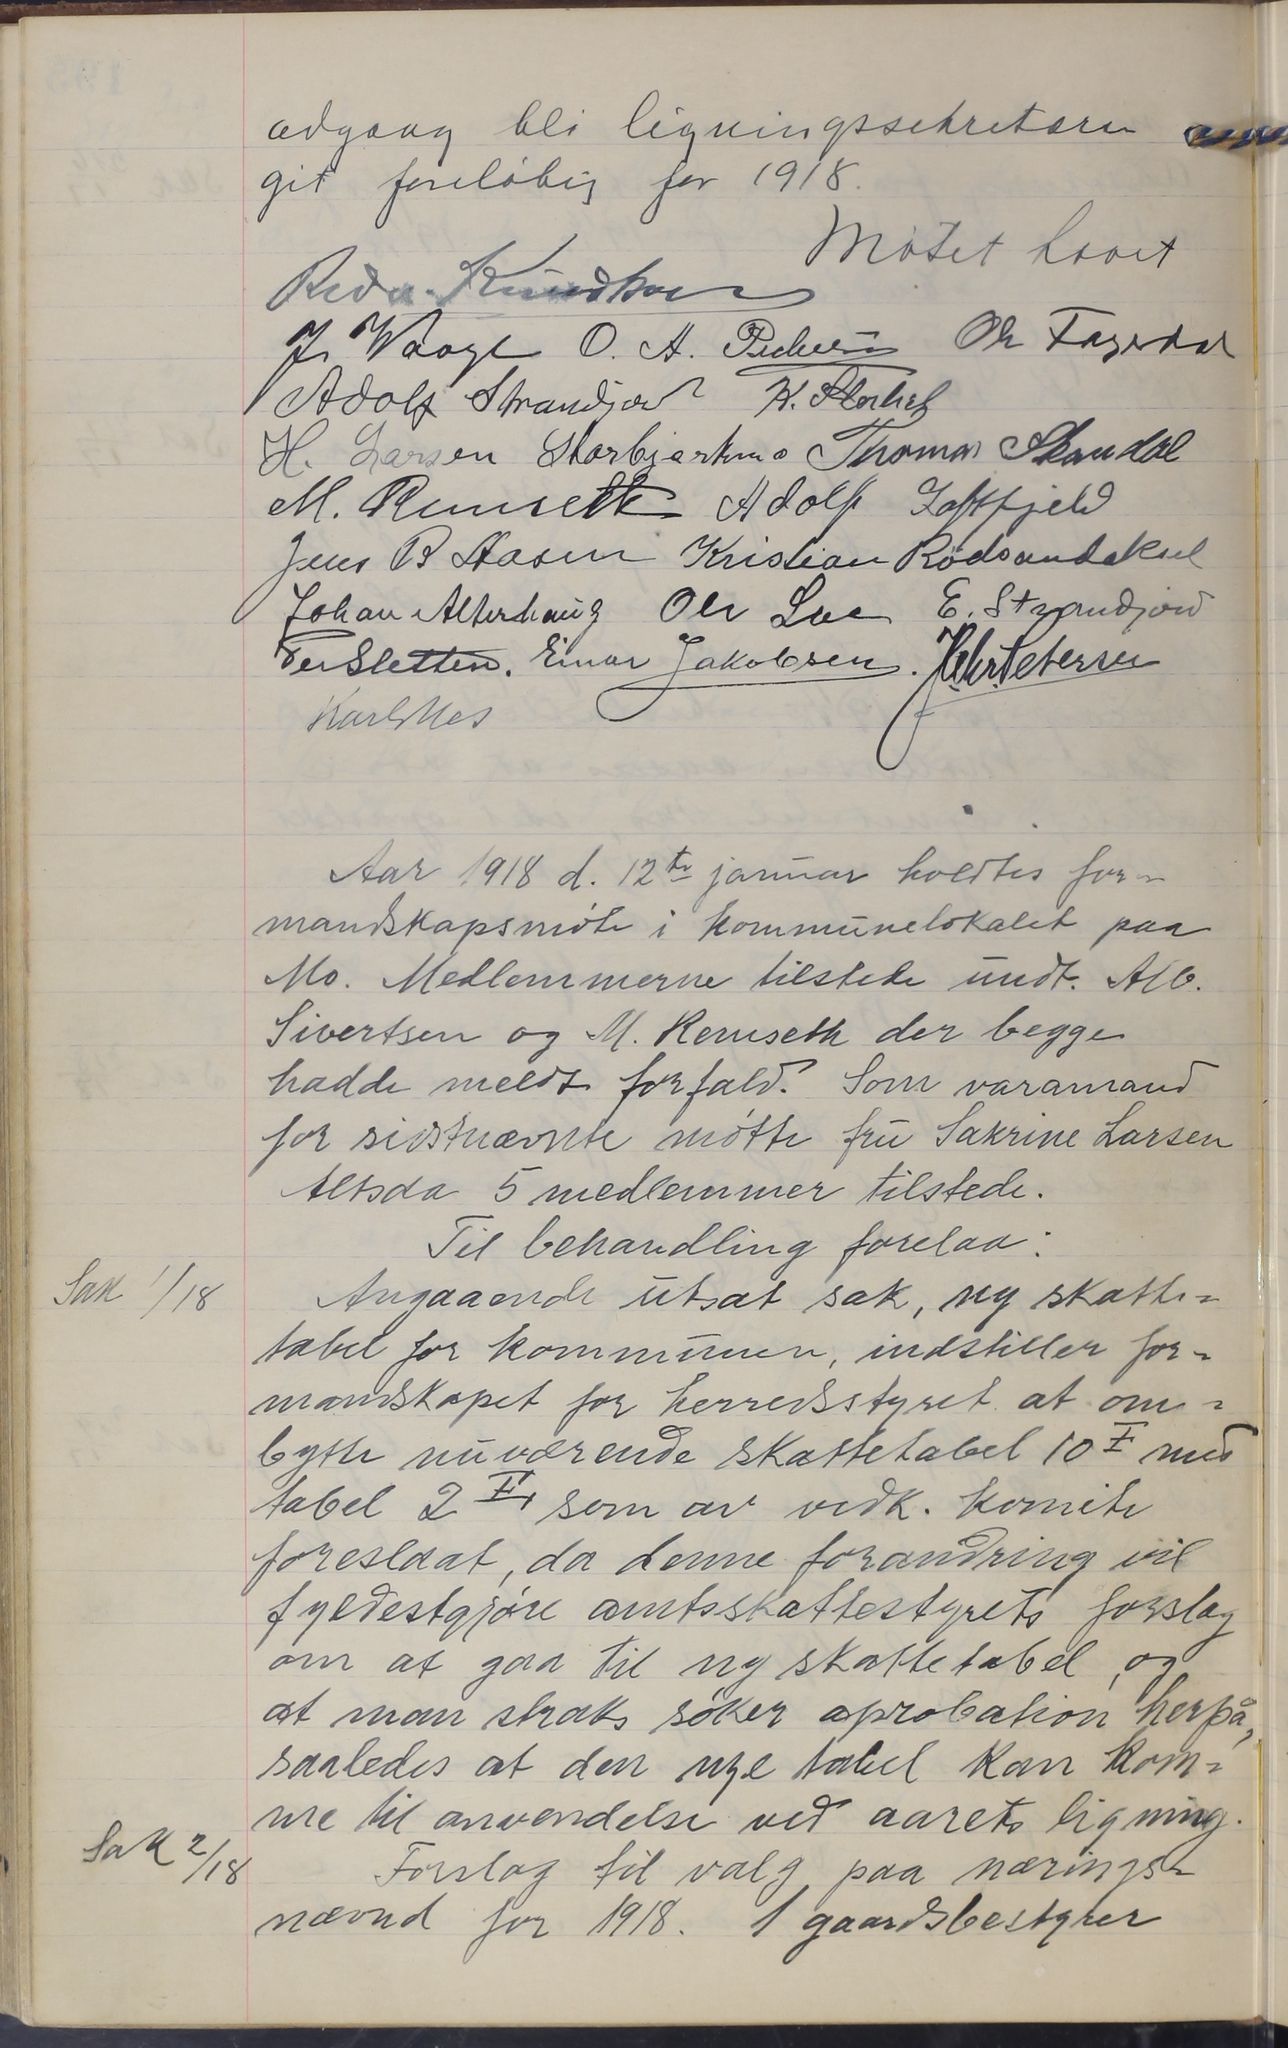 adgang bli ligningssekretæren
git foreløbig for 1918.
Møtet hævet
Peder Knudsen
J. Waage O. A. Pedersen Ole Fagerdal
Adolf Strandjord
H. Larsen Storbjerkmo Thomas Skandal
M. Remseth Adolf Loftfjeld
Jens B Aasen Kristian Rødsandaksel
Johan Alterhaug Ole Lee E. Strandjord
Per Sletten. Einar Jakobsen. Petersen
Karl Nes
Aar 1918 d. 12te januar holdtes for-
mandskapsmøte i kommunelokalet paa
Mo. Medlemmerne tilstede undt. Alb.
Sivertsen og M. Remseth der begge
hadde meldt forfald. Som varamand
for sidstnævnte møtte fru Sakrine Larsen
Altsaa 5 medlemmer tilstede.
Til behandling forelaa:
Sak 1/18 Angaaende utsat sak, ny skatte-
tabel for kommunen, indstiller for-
mandskapet for herredsstyret at om-
bytte nuværende skattetabel 10 I med
tabel 2 II, som av vedk. komite
foreslaat, da denne forandring vil
fyldestgjøre amtsskattestyrets forslag
om at gaa til ny skattetabel, og
at man straks søker aprobation herpå,
saaledes at den nye tabel kan kom-
me til anvendelse ved aarets ligning.
Sak 2/18 Forslag til valg paa nærings-
nævnd for 1918. 1 gaardsbestyrer